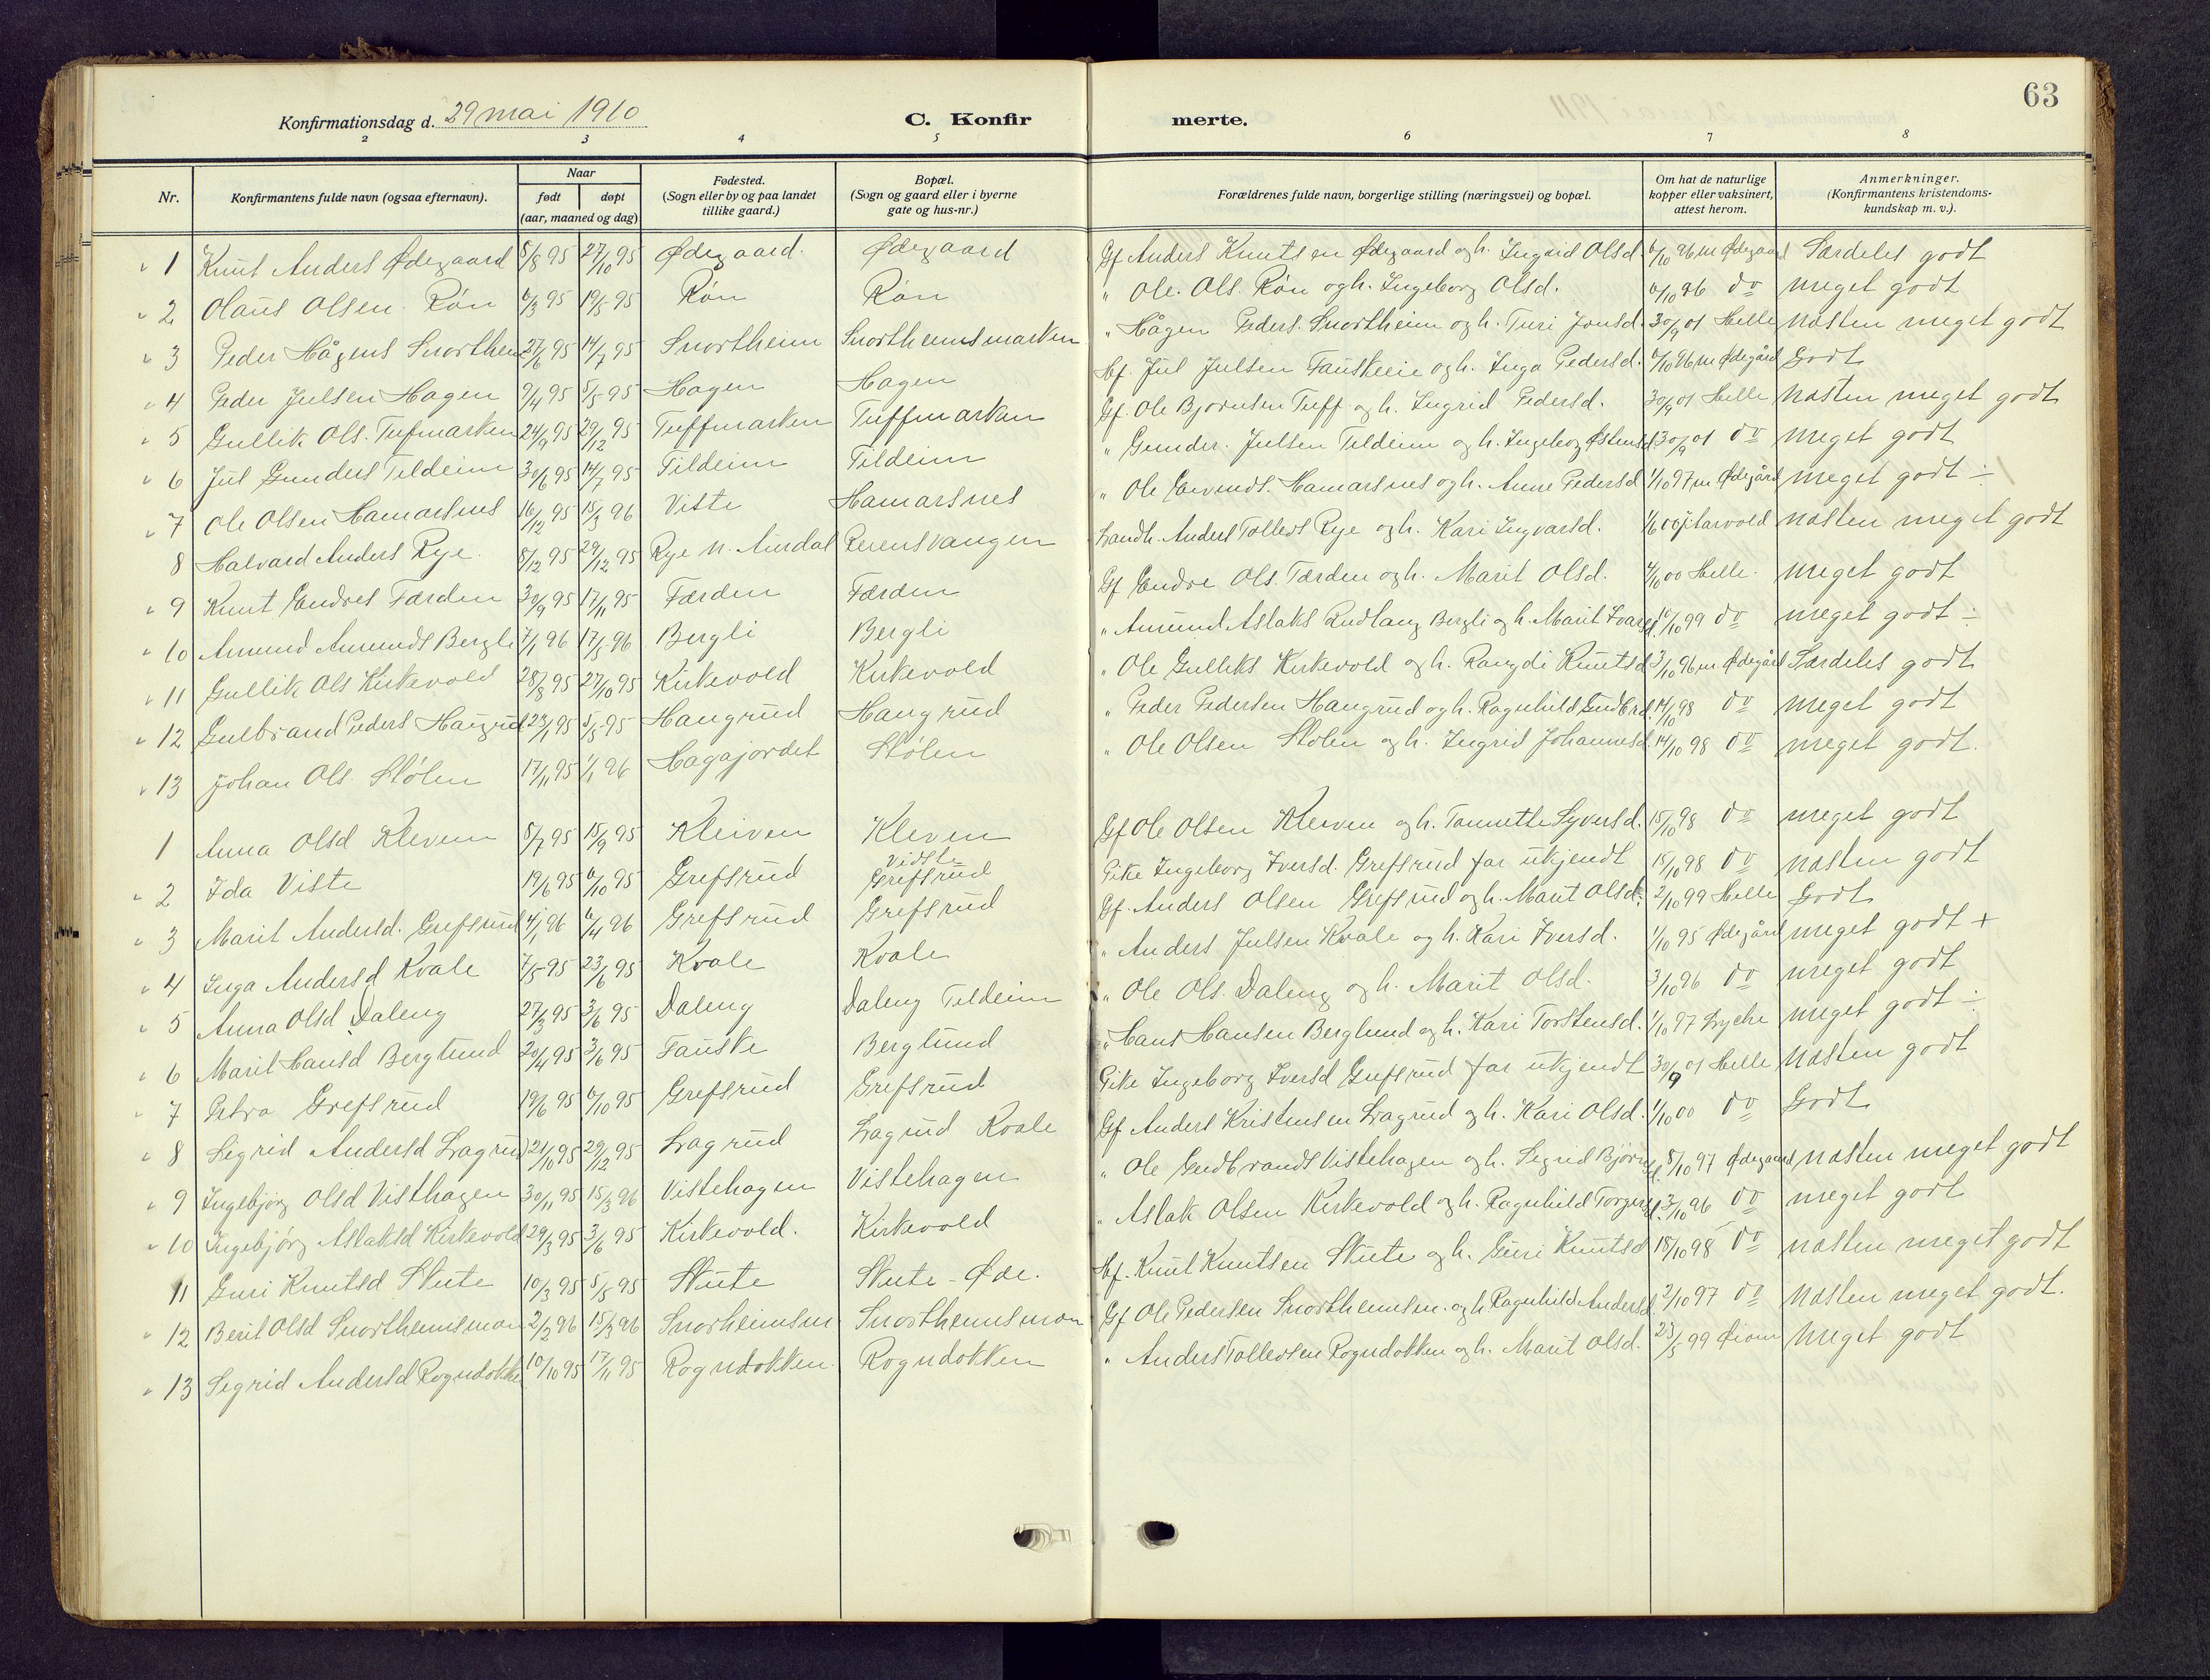 63
Konfirmationsdag d. 29 mai 1910 C. Konfirmerte.
2 3 4 5 6 7 8
Nr. Konfirmantens fulde navn (ogsaa efternavn). Naar født døpt (aar, maaned og dag) Fødested. (Sogn eller by og paa landet tillike gaard.) Bopæl. (Sogn og gaard eller i byerne gate og hus-nr.) Forældrenes fulde navn, borgerlige stilling (næringsvei) og bopæl. Om hat de naturlige kopper eller vaksinert, attest herom. Anmerkninger. (Konfirmantens kristendomskundskap m. v.).
1 Knut Anders Ødegaard 8/8 95 27/10 95 Ødegaard. Ødegaard Gf Anders Knutsen Ødegaard og h. Ingrid Olsd. 6/10 96 m Ødegaard Særdeles godt
2 Olaus Olsen Røn 6/3 95 19/5 95 Røn Røn " Ole. Ols. Røn og h. Ingeborg Olsd. 6/10 96 do meget godt
3 Peder Hågens Snortheim 27/6 95 14/7 95 Snortheim Snortheimsmarken " Hågen Peders. Snortheim og h. Turi Jonsd. 30/9 01 Helle næsten meget godt
4 Peder Julsen Hagen 9/4 95 5/5 95 Hagen Hagen Hf. Jul Julsen Fauskeeie og h. Inga Pedersd. 6/10 96 m Ødegård Godt
5 Gullik Ols. Tufmarken 24/9 95 29/12 95 Tuffmarken Tuffmarken Gf. Ole Bjørnsen Tuff og h. Ingrid Pedersd. 30/9 01 Helle næsten meget godt
6 Jul Gunders Tildeim 30/6 95 14/7 95 Tildeim Tildeim " Gunder. Julsen Tildeim og h. Ingeborg Østensd 30/9 01 do meget godt
7 Ole Olsen Hamarsnes 16/12 95 15/3 96 Viste Hamarsnes " Ole Eivinds. Hamarsnes og h. Anne Pedersd 1/10 97 m Ødegård meget godt ÷
8 Halvard Anders Rye. 8/12 95 29/12 95 Rye N. Aurdal Reiensvangen Landh. Anders Tolleds Rye og h. Kari Ingvarsd. 1/6 00 Jarvold næsten meget godt
9 Knut Endres Færden 30/9 95 17/11 95 Færden Færden Gf Endre Ols. Færden og h. Marit Olsd. 4/10 00 Helle. meget godt
10 Amund Amunds Bergli 7/1 96 17/5 96 Bergli Bergli " Amund Aslaks Rudlang Bergli og h. Marit Ivarsd 10/10 99 do meget godt ÷
11 Gullik Ols Kirkevold 28/8 95 27/10 95 Kirkevold Kirkevold " Ole Gulliks Kirkevold og h. Rangdi Knutsd 3/10 96 m Ødegård Særdeles godt
12 Gulbrand Peders Haugrud 23/1 95 5/5 95 Haugrud Haugrud " Peder Pedersen Haugrud og h. Ragnhild Gudbrd. 14/10 98 do meget godt
13 Johan Ols. Stølen 17/11 95 1/1 96 Hagajordet Stølen " Ole Olsen Stølen og h. Ingrid Johannesd. 14/10 98 do meget godt.
1 Anna Olsd Kleven 8/7 95 15/9 95 Kleiven Kleven Gf Ole Olsen Kleiven og h. Tannette Syversd. 15/10 98 do meget godt
2 Ida Viste 19/6 95 6/10 95 Grefsrud Vidste Grefsrud Pike Ingeborg Iversd. Grefsrud far ukjendt 15/10 98 do næsten godt
3 Marit Andersd. Grefsrud 4/1 96 6/4 96 Grefsrud Grefsrud Gf. Anders Olsen Grefsrud og h. Marit Olsd. 2/10 99 Helle Godt
4 Inga Andersd Kvale 7/5 95 23/6 95 Kvale Kvale " Anders Julsen Kvale og h. Kari Iversd. 1/10 95 Ødegård meget godt +
5 Anna Olsd Daleng 27/3 95 3/6 95 Daleng Daleng Tildeim " Ole Ols. Daleng og h. Marit Olsd. 3/10 96 do meget godt
6 Marit Hansd Berglund 20/4 95 3/6 95 Fauske Berglund " Hans Hansen Berglund og h. Kari Torstensd. 1/10 97 Lyche meget godt ÷
7 Petra Grefsrud 19/6 95 6/10 95 Grefsrud Grefsrud Pike Ingeborg Iversd Grefsrud far ukjendt 30/9 01 Helle næsten godt
8 Sigrid Andersd Lagrud 21/10 95 29/12 95 Lagrud Lagrud Kvale Gf Anders Kristensen Lagrud og h. Kari Olsd. 1/10 00 do Godt
9 Ingebjørg Olsd Visthagen 30/11 95 15/3 96 Vistehagen Vistehagen " Ole Gudbrands Vistehagen og h. Sigrid Bjørnsd. 8/10 97 Ødegaard næsten meget godt
10 Ingebjørg Aslaksd Kirkevold 29/3 95 3/6 95 Kirkevold. Kirkevold " Aslak Olsen Kirkevold og h. Ragnhild Torgersd. 3/10 96 do meget godt
11 Guri Knutsd Skute 10/3 95 5/5 95 Skute Skute - Øde. Hf. Knut Knutsen Skute og h. Guri Knutsd 18/10 98 do næsten meget godt
12 Berit Olsd Snortheimsmon 2/2 96 15/3 96 Snorheimsm. Snortheimsmon Gf Ole Pedersen Snortheimsm. og h. Ragnhild Andersd. 2/10 97 do næsten meget godt.
13 Sigrid Andersd Rogndokken 10/10 95 17/11 95 Rogndokken Rogndokken " Anders Tolledsen Rogndokken og h. Marit Olsd. 23/5 99 meget godt